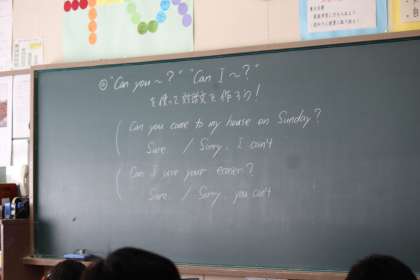 ◎ "Can you ~?" "Can I ~?"
を使って対話文を作ろう!
Can you come to my house on Sunday?
Sure. / Sorry, I can't
Can I use your eraser?
Sure. / Sorry, you can't